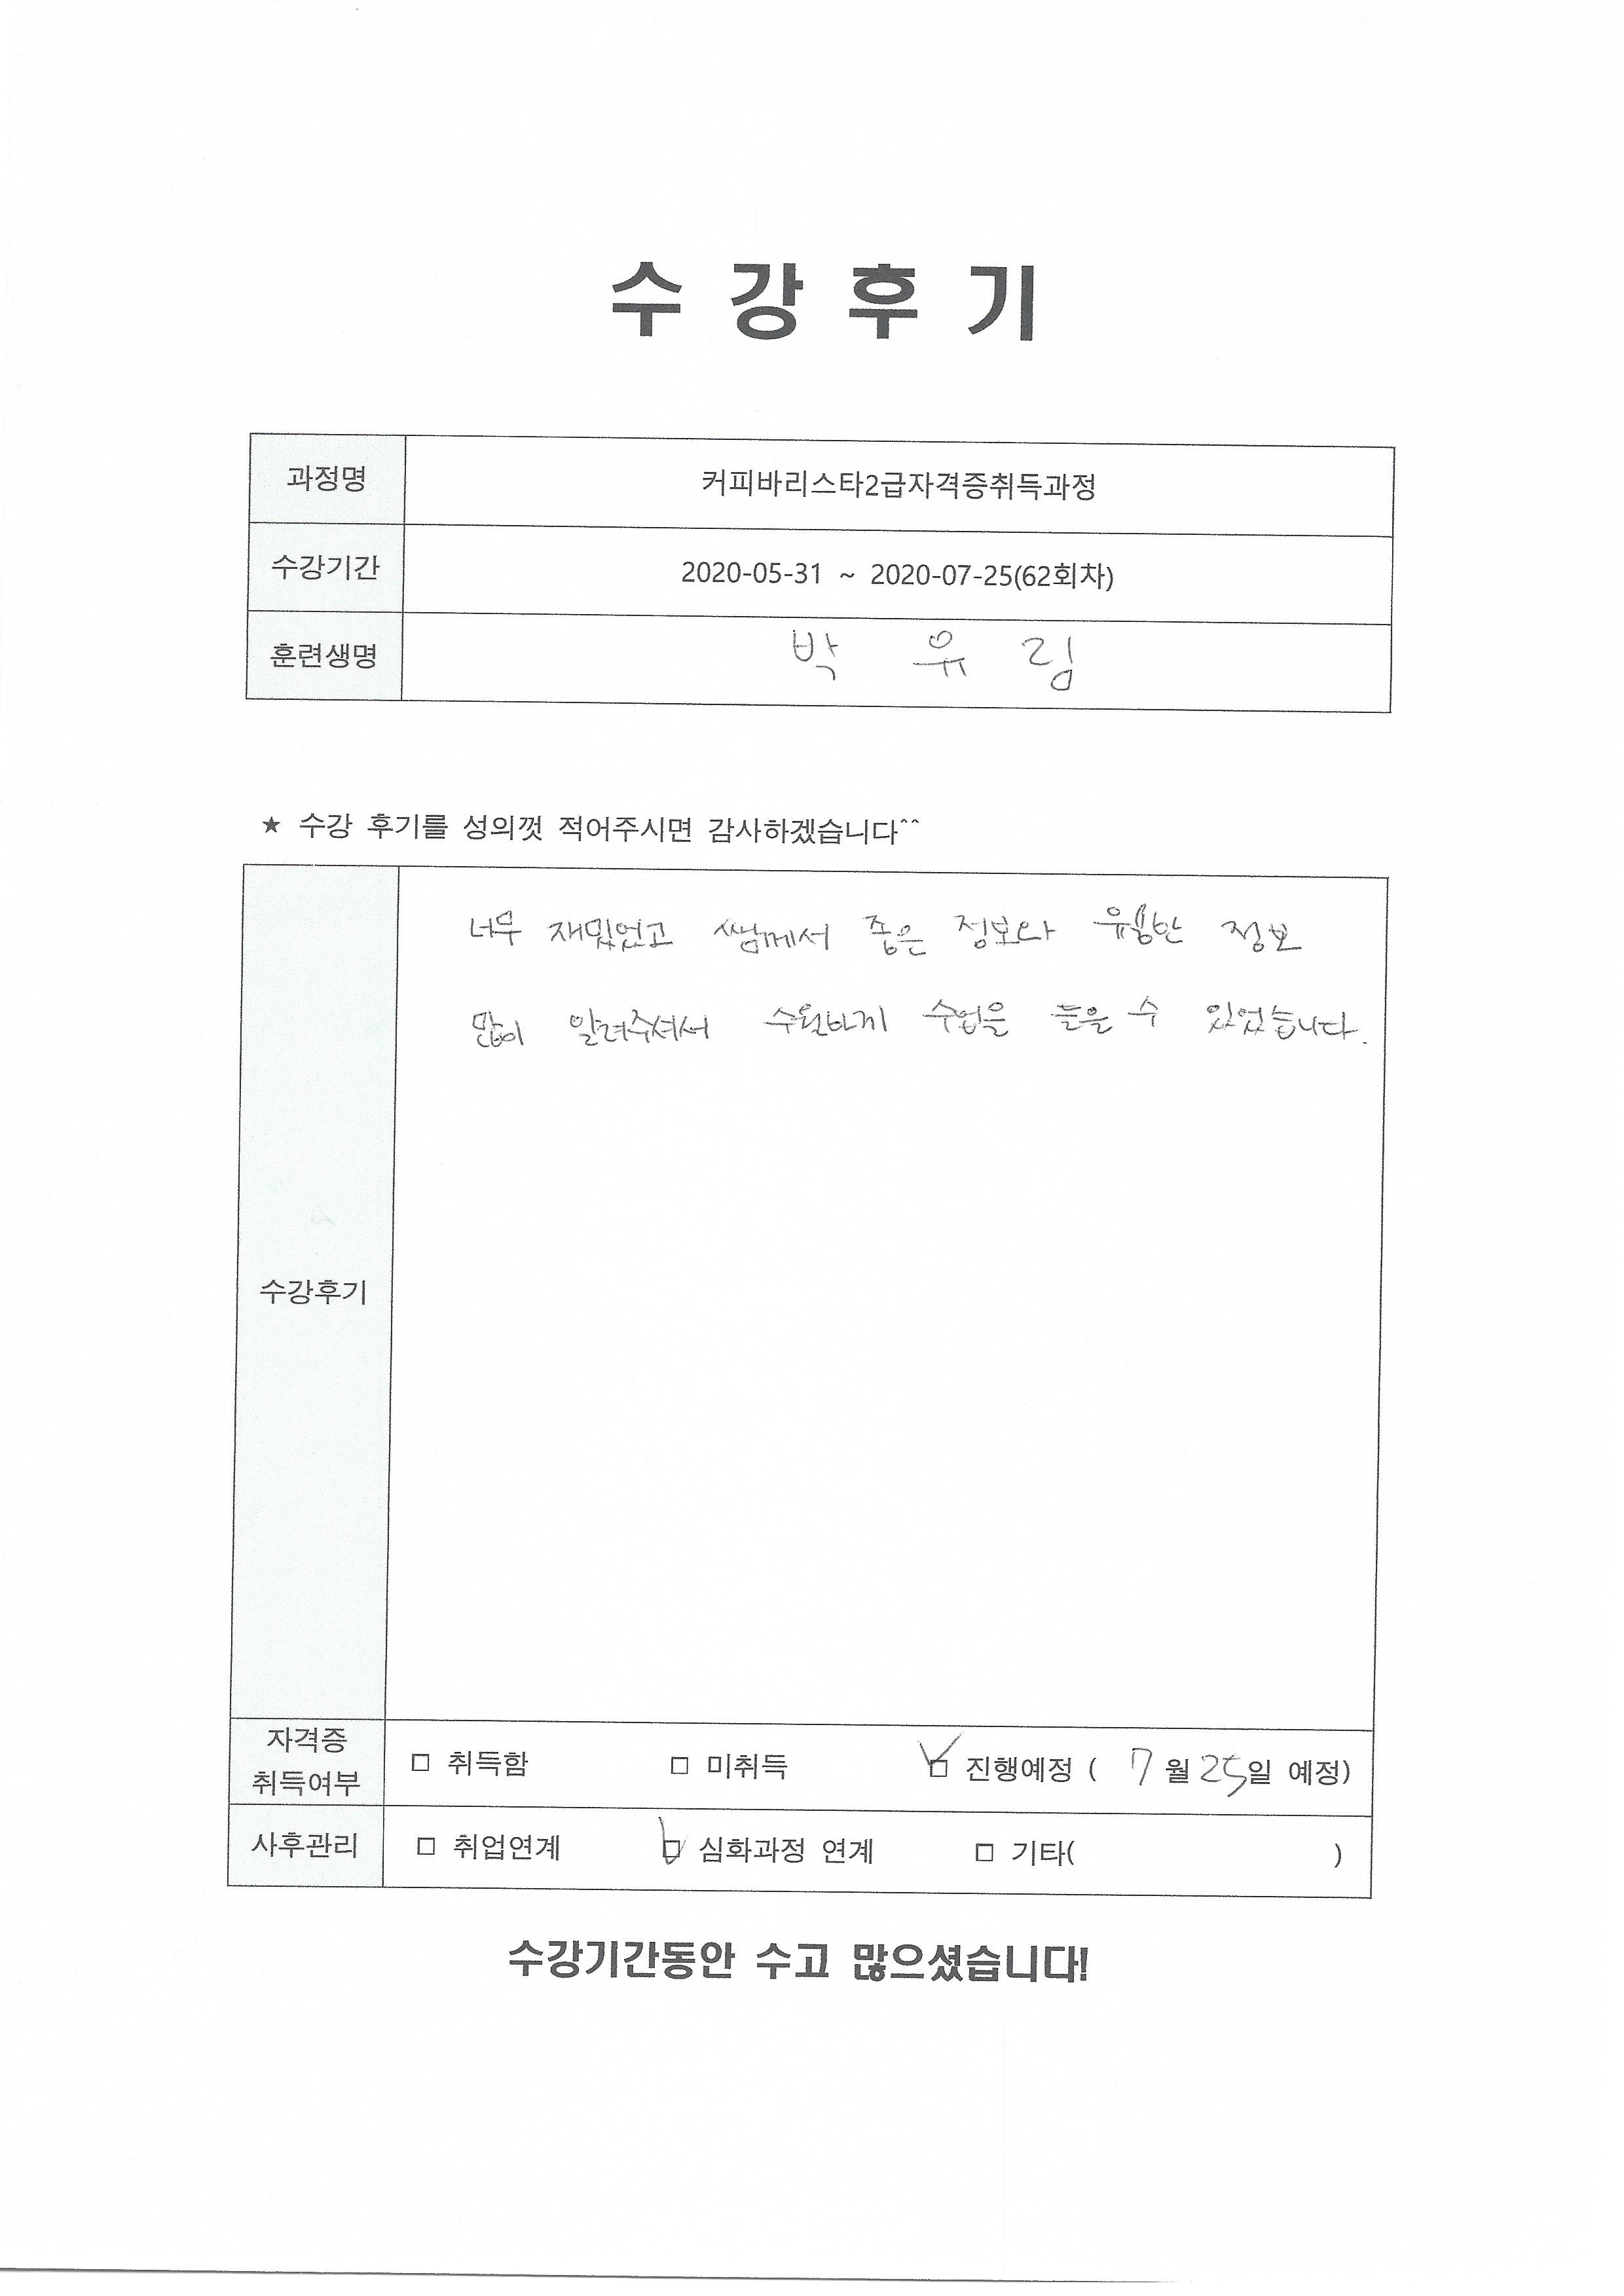 수 강 후 기
과정명 커피바리스타2급자격증취득과정
수강기간 2020-05-31 ~ 2020-07-25(62회차)
훈련생명 박 유 림
★ 수강 후기를 성의껏 적어주시면 감사하겠습니다^^
너무 재밌었고 쌤께서 좋은 정보와 유용한 정보
많이 알려주셔서 수월하게 수업을 들을 수 있었습니다.
수강후기
자격증
취득여부 □ 취득함 □ 미취득 ☑ 진행예정 ( 7 월 25일 예정)
사후관리 □ 취업연계 ☑ 심화과정 연계 □ 기타( )
수강기간동안 수고 많으셨습니다!